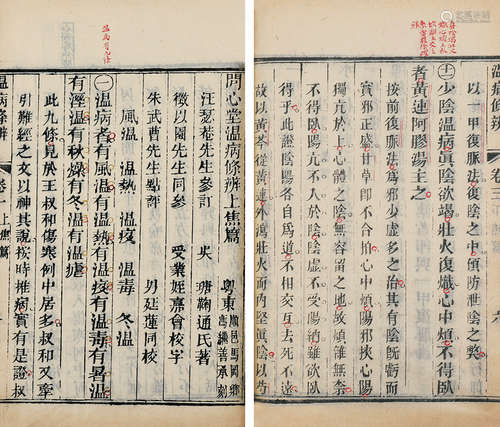 以一甲復脈法復陰之中預防泄陰之弊
十一 少陰溫病眞陰欲竭壯火復熾心中煩不得臥
者黃連阿膠湯主之
按前復脈法爲邪少虛多之治其有陰既虧而
實邪正盛甘草即不合拍心中煩陽邪挾心陽
獨亢於上心體之陰無容留之地故煩雜無奈
不得臥陽亢不入於陰陰虛不受陽納雖欲臥
得乎此證陰陽各自爲道不相交互去死不遠
故以黃芩從黃連外瀉壯火而內堅眞陰以芍
問心堂溫病條辨上焦篇
粵東 順邑馬岡鄉
馮繼善承刻
汪瑟菴先生叅訂 吳 瑭鞠通氏著
徵以園先生同叅 受業姪嘉會校字
朱武曹先生點評 男廷蓮同校
風溫 溫熱 溫疫 溫毒 冬溫
一 溫病者有風溫有溫熱有溫疫有溫毒有暑溫
有溼溫有秋燥有冬溫有溫瘧
此九條見於王叔和傷寒例中居多叔和又牽
引難經之文以神其說按時推病實有是證叔
溫病條辨 卷一上焦篇